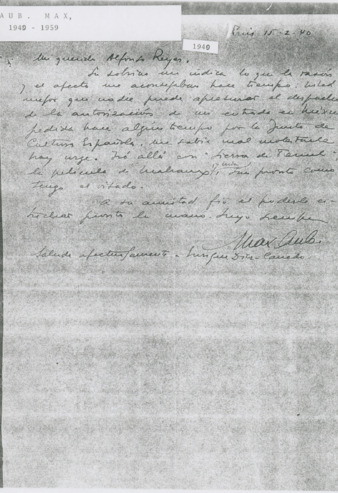 AUB, MAX,
1940 - 1959
1940
París 15-2-40
Mi querido Alfonso Reyes:
Le sabrán mi indica lo que la razón
y el afecto me aconsejaban hace tiempo: Usted
mejor que nadie puede apresurar el despacho
de la autorización de mi entrada en México
pedida hace algún tiempo por la Junta de
Cultura Española. No sabía mal molestarle
hay urge. Iré allá con "Sierra de Teruel"
la película de Malraux, tan pronto como
tenga el visado.
A su amistad fío el poderle es-
trechar pronto la mano. Suyo siempre
Max Aub.
Salude afectuosamente a Enrique Díez-Canedo